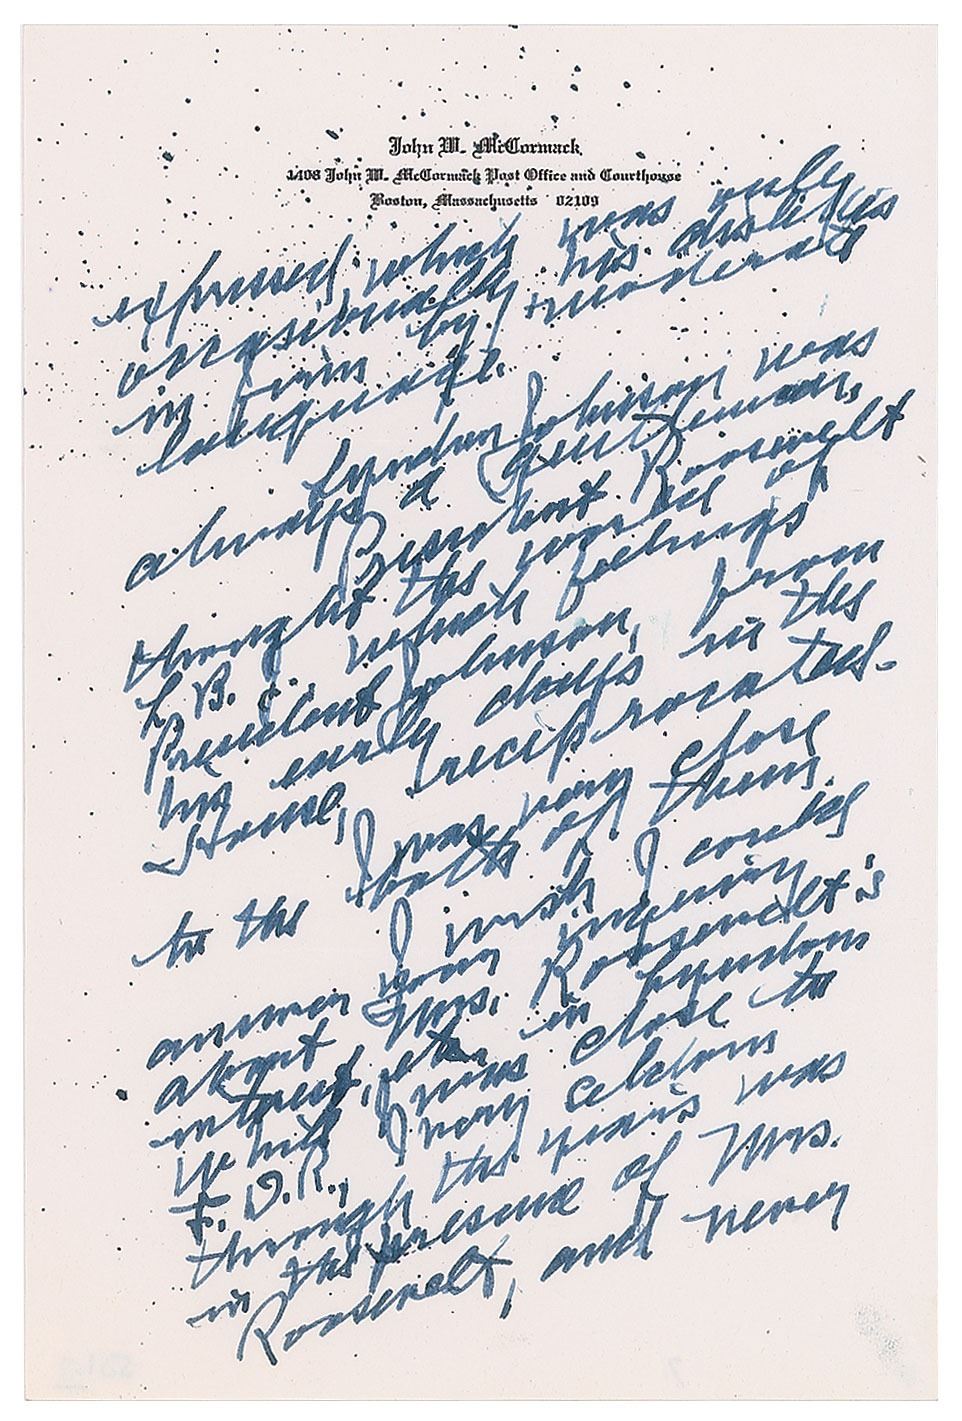 John W. McCormack
1408 John W. McCormack Post Office and Courthouse
Boston, Massachusetts 02109
expressed, which was only
occasionally, his dislikes
in firm by moderate
language.
Lyndon Johnson was
always a gentleman.
President Roosevelt
thought the world of
L. B. J. which feelings
President Johnson, from
his early days in the
House, reciprocated.
I was very close
to the both of them.
I wish I could
answer your inquiry
about Mrs. Roosevelt's
interest, etc. in Lyndon
While I was close to
F. D. R., I very seldom
through the years was
in the presence of Mrs.
Roosevelt, and never